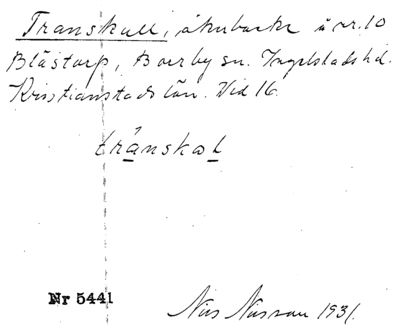 Transkull, åkerbacke å nr. 10
Blästorp, Borrby sn. Ingelstads hd.
Kristianstads län. Vid 16.
trånskal
Nr 5441
Nils Nilsson 1931.